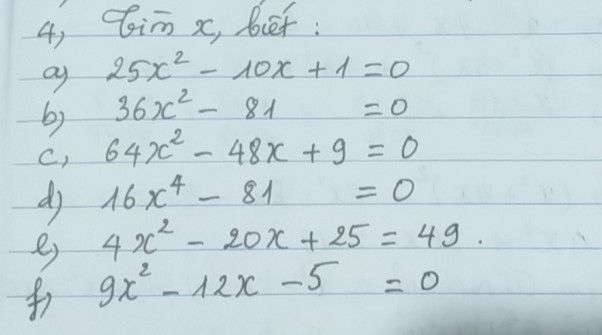 4, Tìm x, biết :
a) 25x² - 10x + 1 = 0
b) 36x² - 81 = 0
c, 64x² - 48x + 9 = 0
d) 16x⁴ - 81 = 0
e) 4x² - 20x + 25 = 49.
f, 9x² - 12x - 5 = 0